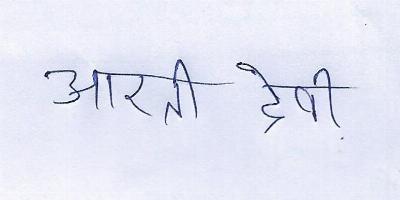 आरती देवी